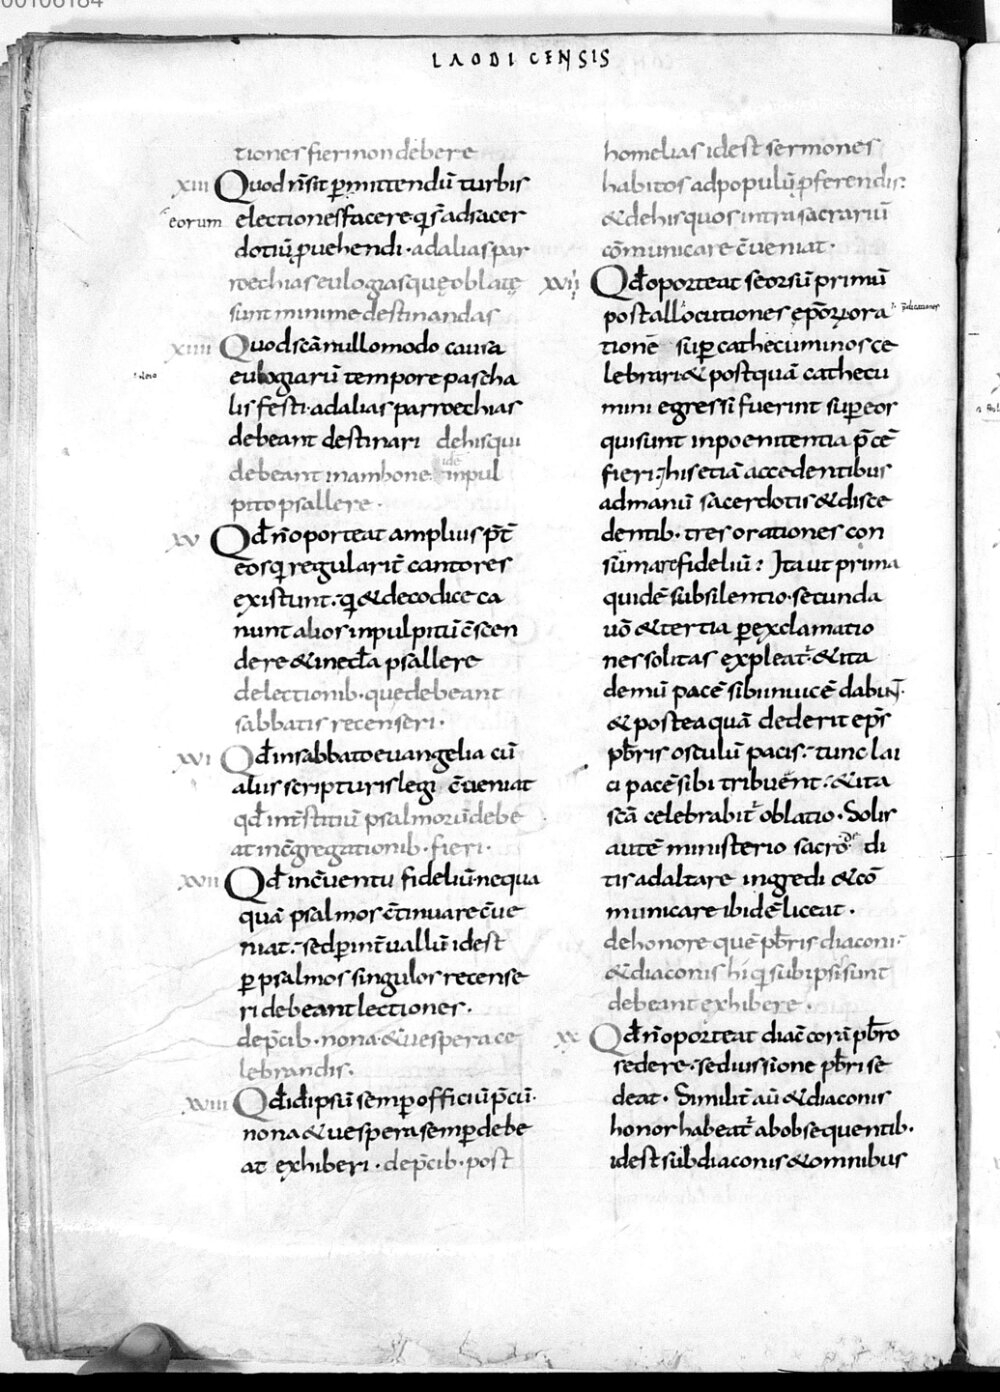 00106184
LAODICENSIS
tiones fieri non debere
XIII Quod n̄ sit p̲mittendū turbis
eorum electiones facere q̄ s̄ ad sacer
dotiū p̲vehendi · ad alias par
roechias eulogias quę oblatę
sunt minime destinandas
XIIII Quod sc̄a nullo modo causa
eulogiarū tempore pascha
lis festi · ad alias parroechias
debeant destinari de his qui
debeant in ambone idē in pul
pito psallere ·
XV Qd̄ n̄ oporteat amplius p̄t̄
eos qi regularit̄ cantores
existunt · qi & de codice ca
nunt alios in pulpitū c̄scen
dere & in eccl̄a psallere
de lectionib · que debeant
sabbatis recenseri ·
XVI Qd̄ in sabbato evangelia cū
aliis scripturis legi c̄veniat
qd̄ int̄stitiū psalmorū debe
at in c̄gregationib · fieri ·
XVII Qd̄ in c̄ventu fideliū nequa
quā psalmos c̄tinuare c̄ve
niat · sed p̲ int̄vallū id est
p̲ psalmos singulos recense
ri debeant lectiones ·
de p̄cib · nona & vespera ce
lebrandis ·
XVIII Qd̄ id ipsū semp̲ officiū p̄cū ·
nona & vespera semp̲ debe
at exhiberi · de p̄cib · post
homelias id est sermones
habitos ad populū p̲ferendis :
& de his quos intra sacrariū
cōmunicare c̄veniat ·
XVIIII Qd̄ oporteat seorsū primū
post allocutiones ep̄orꝝ ora
tionē sup̲ cathecuminos ce
lebrari & postquā cathecu
mini egressi fuerint sup̲ eos
qui sunt in poenitentia p̄cē
fieri ; his etiā accedentibus
ad manū sacerdotis & disce
dentib · tres orationes con
sūmare fideliū : Ita ut prima
quidē sub silentio · secunda
vō & tertia p̲ exclamatio
nes solitas expleat̄ · & ita
demū pacē sibi invicē dabuN̄ ·
& postea quā dederit ep̄s
pb̄ris osculū pacis · tunc lai
ci pacē sibi tribuent · & ita
sc̄a celebrabit̄ oblatio · Solis
autē ministerio sacro de di
tis ad altare ingredi & cō
municare ibidē liceat ·
de honore quē pb̄ris diaconi ·
& diaconis hi qi sub ipsis sunt
debeant exhibere ·
XX Qd̄ n̄ oporteat diac̄ corā pb̄ro
sedere · sed iussione pb̄ri se
deat · Similit̄ aū & diaconis
honor habeat̄ ab obsequentib ·
id est subdiaconis & omnibus